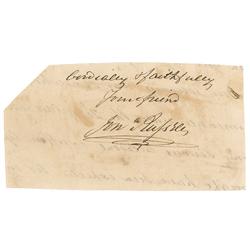 Cordially & faithfully
Your friend
Jon. Russell